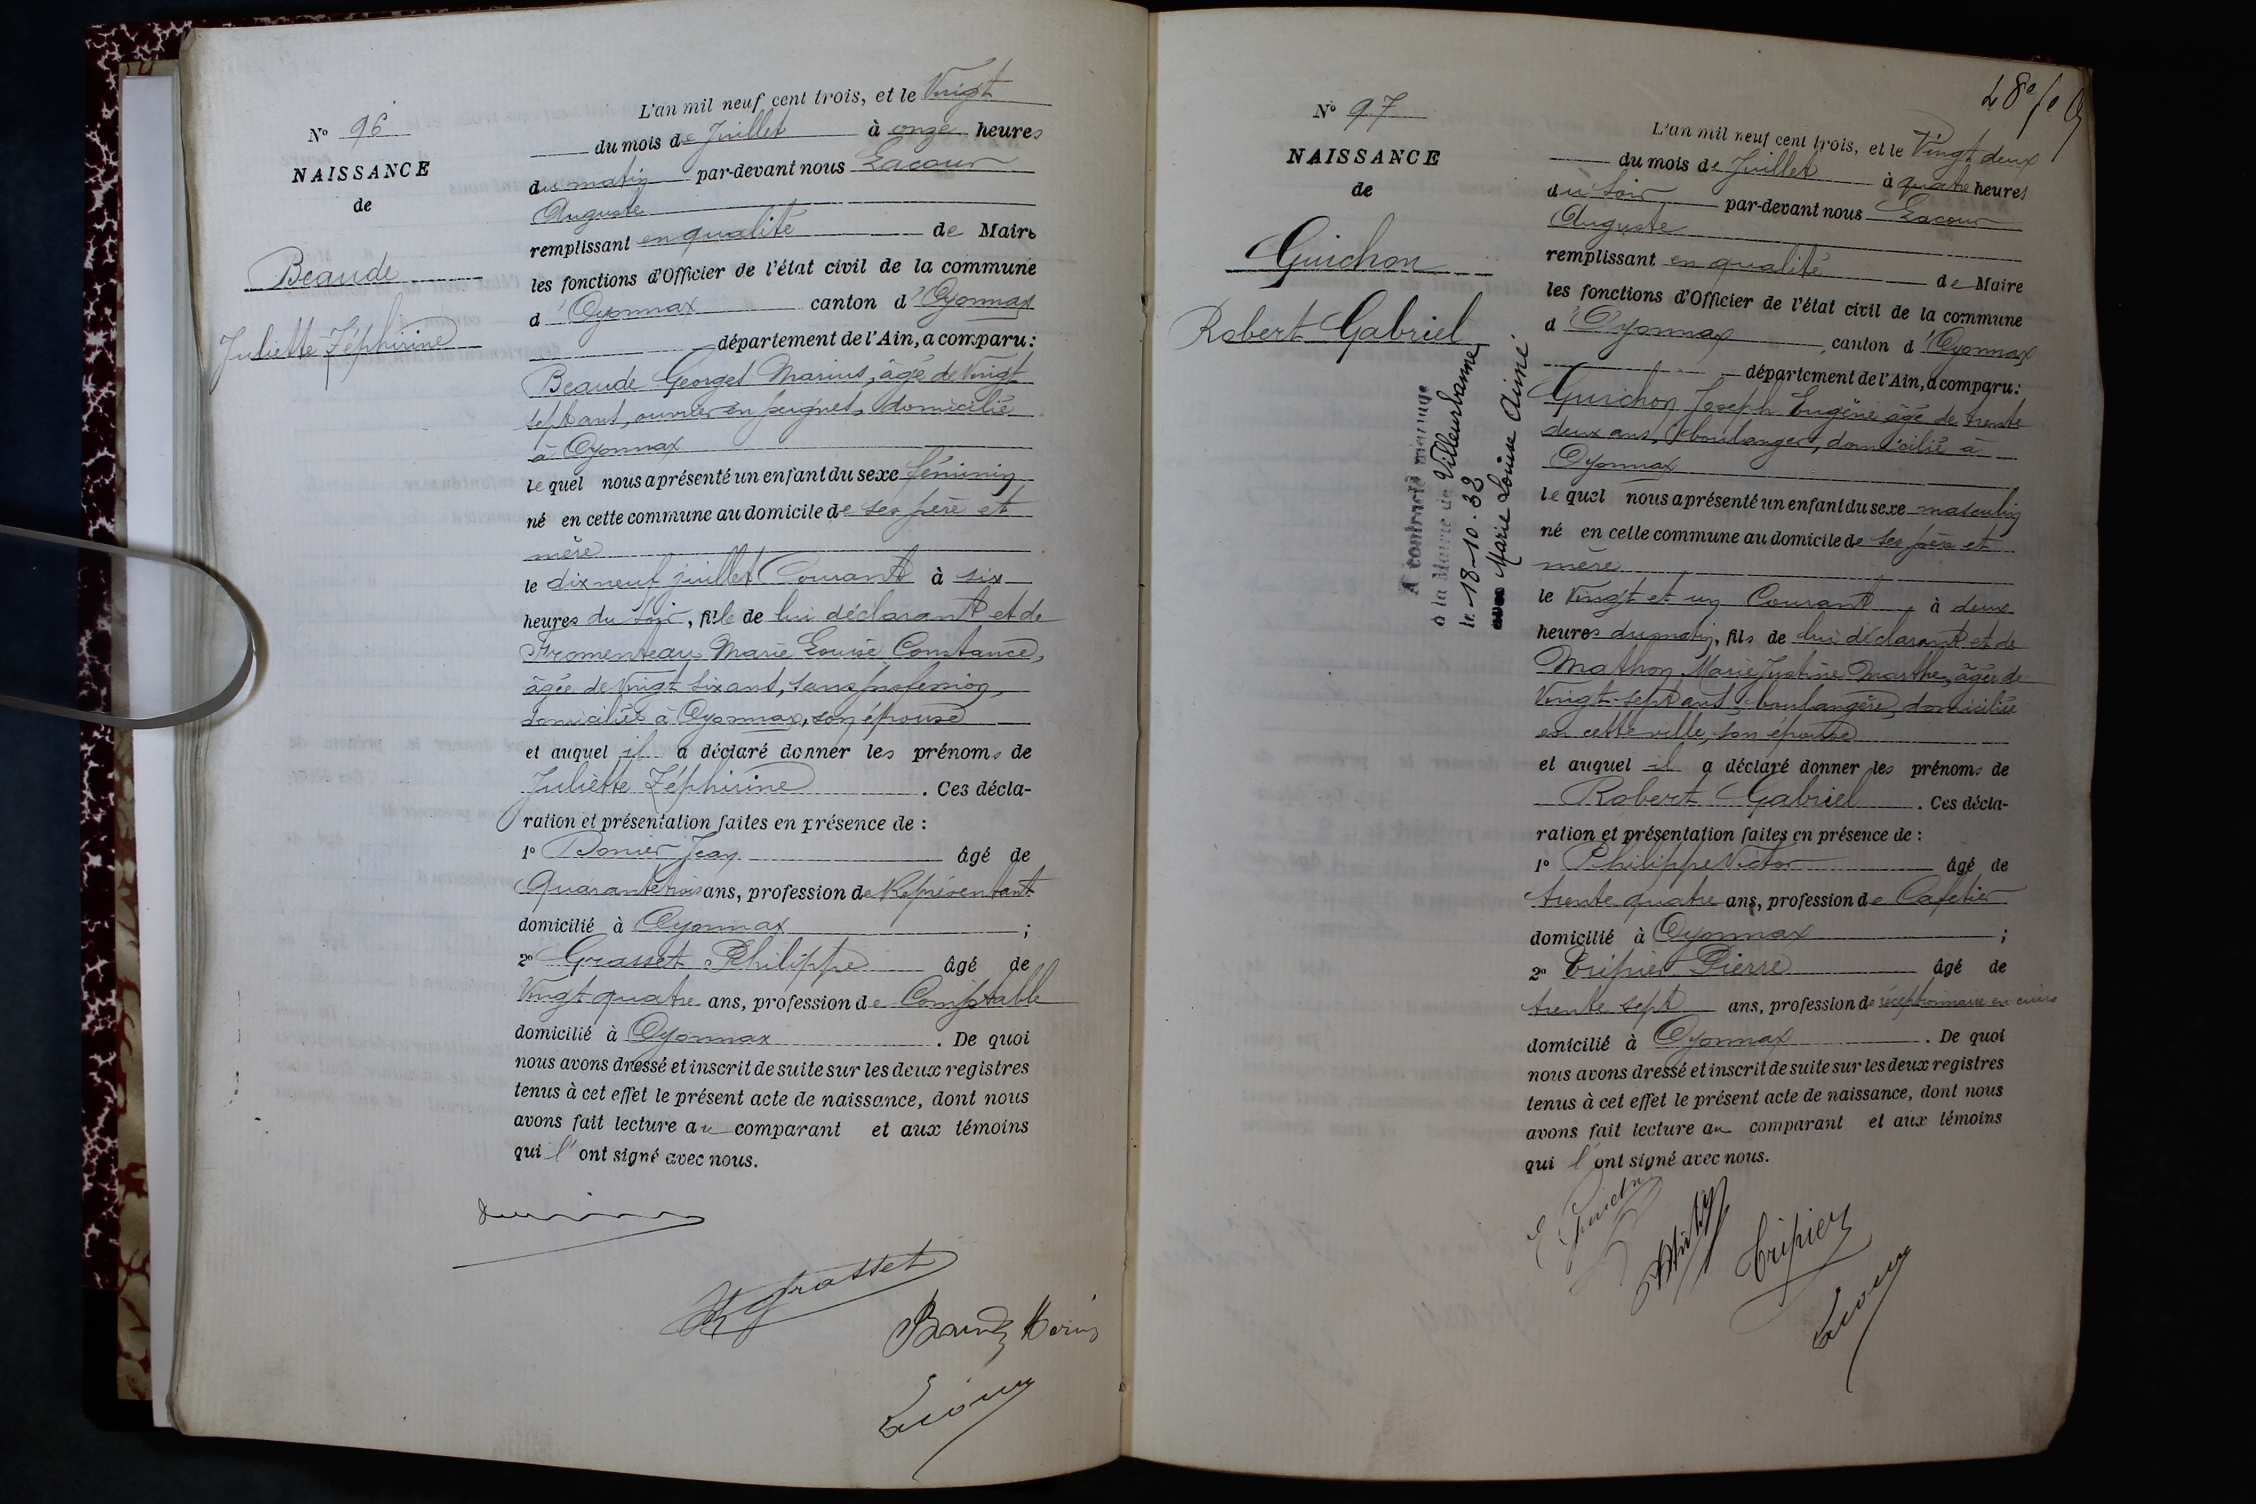 N° 96
NAISSANCE
de
Beaude
Juliette Zéphirine
L'an mil neuf cent trois, et le Vingt
du mois de Juillet à onze heures
du matin par-devant nous Lacour
Auguste
remplissant en qualité de Maire
les fonctions d'Officier de l'état civil de la commune
d'Oyonnax canton d'Oyonnax
département de l'Ain, a comparu:
Beaude Georges Marius, âgé de Vingt
sept ans, ouvrier en peignes, domicilié
à Oyonnax
lequel nous a présenté un enfant du sexe féminin
né en cette commune au domicile de ses père et
mère
le dix neuf juillet Courant à six
heures du soir, fille de lui déclarant et de
Fromenteau Marie Louise Constance,
âgée de Vingt six ans, sans profession,
domiciliée à Oyonnax, son épouse
et auquel il a déclaré donner les prénoms de
Juliette Zéphirine. Ces décla-
ration et présentation faites en présence de :
1° Jean âgé de
Quarante trois ans, profession de Représentant
domicilié à Oyonnax ;
2° Grasset Philippe âgé de
Vingt quatre ans, profession de Comptable
domicilié à Oyonnax. De quoi
nous avons dressé et inscrit de suite sur les deux registres
tenus à cet effet le présent acte de naissance, dont nous
avons fait lecture au comparant et aux témoins
qui l'ont signé avec nous.
Ph Grasset
Beaude Marius
Lacour
48e fo
N° 97
NAISSANCE
de
Guichon
Robert Gabriel
A contracté mariage
à la Mairie de Villeurbanne
le 18-10-32
avec Marie Louise Aimé
L'an mil neuf cent trois, et le Vingt deux
du mois de Juillet à quatre heures
du soir par-devant nous Lacour
Auguste
remplissant en qualité de Maire
les fonctions d'Officier de l'état civil de la commune
d'Oyonnax, canton d'Oyonnax
département de l'Ain, a comparu:
Guichon Joseph Eugène âgé de trente
deux ans, boulanger, domicilié à
Oyonnax
lequel nous a présenté un enfant du sexe masculin
né en cette commune au domicile de ses père et
mère
le Vingt et un Courant, à deux
heures du matin, fils de lui déclarant et de
Mathon Marie Justine Marthe, âgée de
Vingt-sept ans, boulangère, domiciliée
en cette ville, son épouse
et auquel il a déclaré donner les prénoms de
Robert Gabriel. Ces décla-
ration et présentation faites en présence de :
1° Philippe Victor âgé de
trente quatre ans, profession de Cafetier
domicilié à Oyonnax ;
2° Tripier Pierre âgé de
trente sept ans, profession de réceptionnaire en cuirs
domicilié à Oyonnax. De quoi
nous avons dressé et inscrit de suite sur les deux registres
tenus à cet effet le présent acte de naissance, dont nous
avons fait lecture au comparant et aux témoins
qui l'ont signé avec nous.
E Guichon
Tripier
Lacour